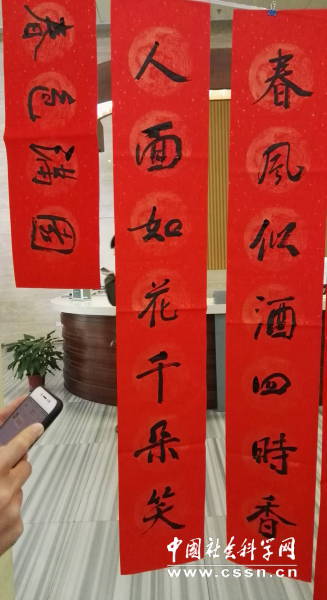 春風似酒四時香
人面如花千朵笑
春色滿園
中国社会科学网
www.cssn.cn